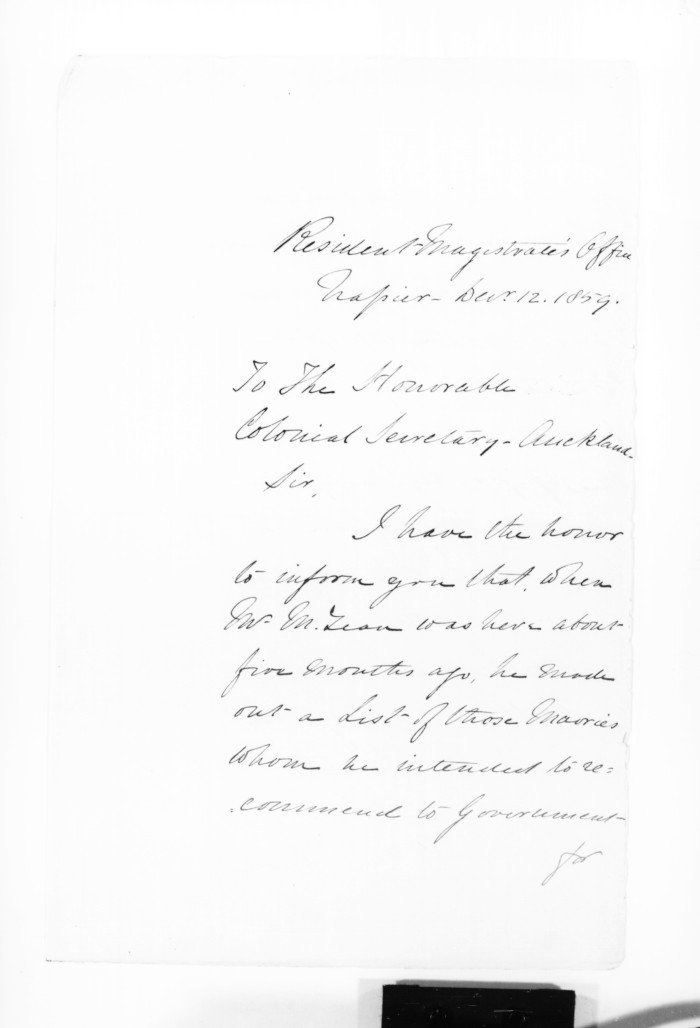 Resident Magistrate's Office
Napier - Decr. 12. 1859.
To The Honorable
Colonial Secretary - Auckland -
Sir,
I have the honor
to inform you that, when
Mr. McLean was here about
five months ago, he made
out a List of those Maories
whom he intended to re=
=commend to Government
for